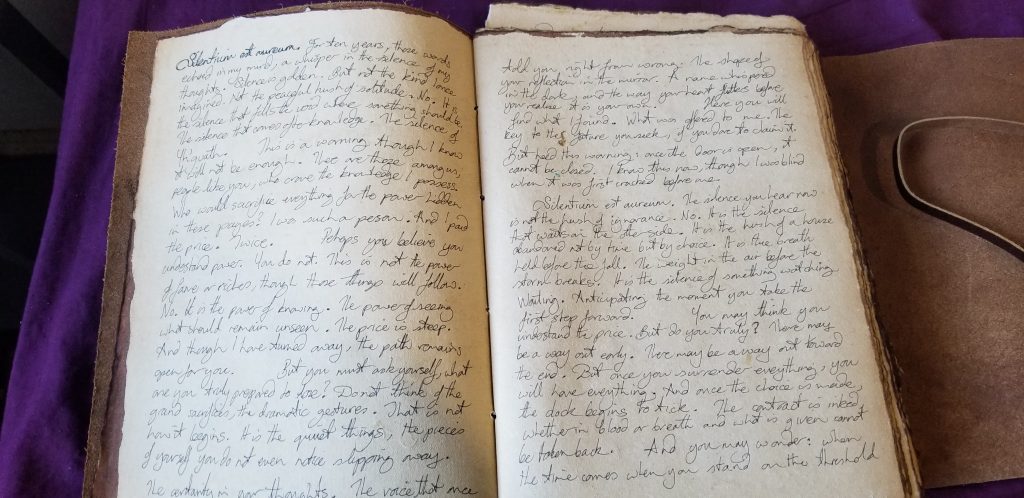 Silentium est aureum. For ten years, those words
echoed in my mind, a whisper in the silence of my
thoughts. Silence is golden. But not the kind I once
imagined. Not the peaceful hush of solitude. No. It is
the silence that fills the void where something should be.
The silence that comes after knowledge. The silence of
This is a warning, though I know
it will not be enough. There are those among us,
people like you, who crave the knowledge I possess.
Who would sacrifice everything for the power hidden
in these pages? I was such a person. And I paid
the price. Twice. Perhaps you believe you
understand power. You do not. This is not the power
of fame or riches, though those things will follow.
No. It is the power of knowing. The power of seeing
what should remain unseen. The price is steep.
And though I have turned away, the path remains
open for you. But you must ask yourself, what
are you truly prepared to lose? Do not think of the
grand sacrifices, the dramatic gestures. That is not
how it begins. It is the quiet things, the pieces
of yourself you do not even notice slipping away.
The certainty in your thoughts. The voice that once
told you right from wrong. The shape of
your reflection in the mirror. A name whispered
in the dark, and the way your heart falters before
you realize it is your own. Here you will
find what I found. What was offered to me. The
key to the future you seek, if you dare to claim it.
But heed this warning: once the door is open, it
cannot be closed. I know this now, though I was blind
when it was first cracked before me.
Silentium est aureum. The silence you hear now
is not the hush of ignorance. No. It is the silence
that waits on the other side. It is the hush of a house
abandoned not by time but by choice. It is the breath
held before the fall. The weight in the air before the
storm breaks. It is the silence of something watching.
Waiting. Anticipating the moment you take the
first step forward. You may think you
understand the price. But do you truly? There may
be a way out early. There may be a way out toward
the end. But once you surrender everything, you
will have everything. And once the choice is made,
the clock begins to tick. The contract is inked,
whether in blood or breath and what is given cannot
be taken back. And you may wonder: when
the time comes when you stand on the threshold